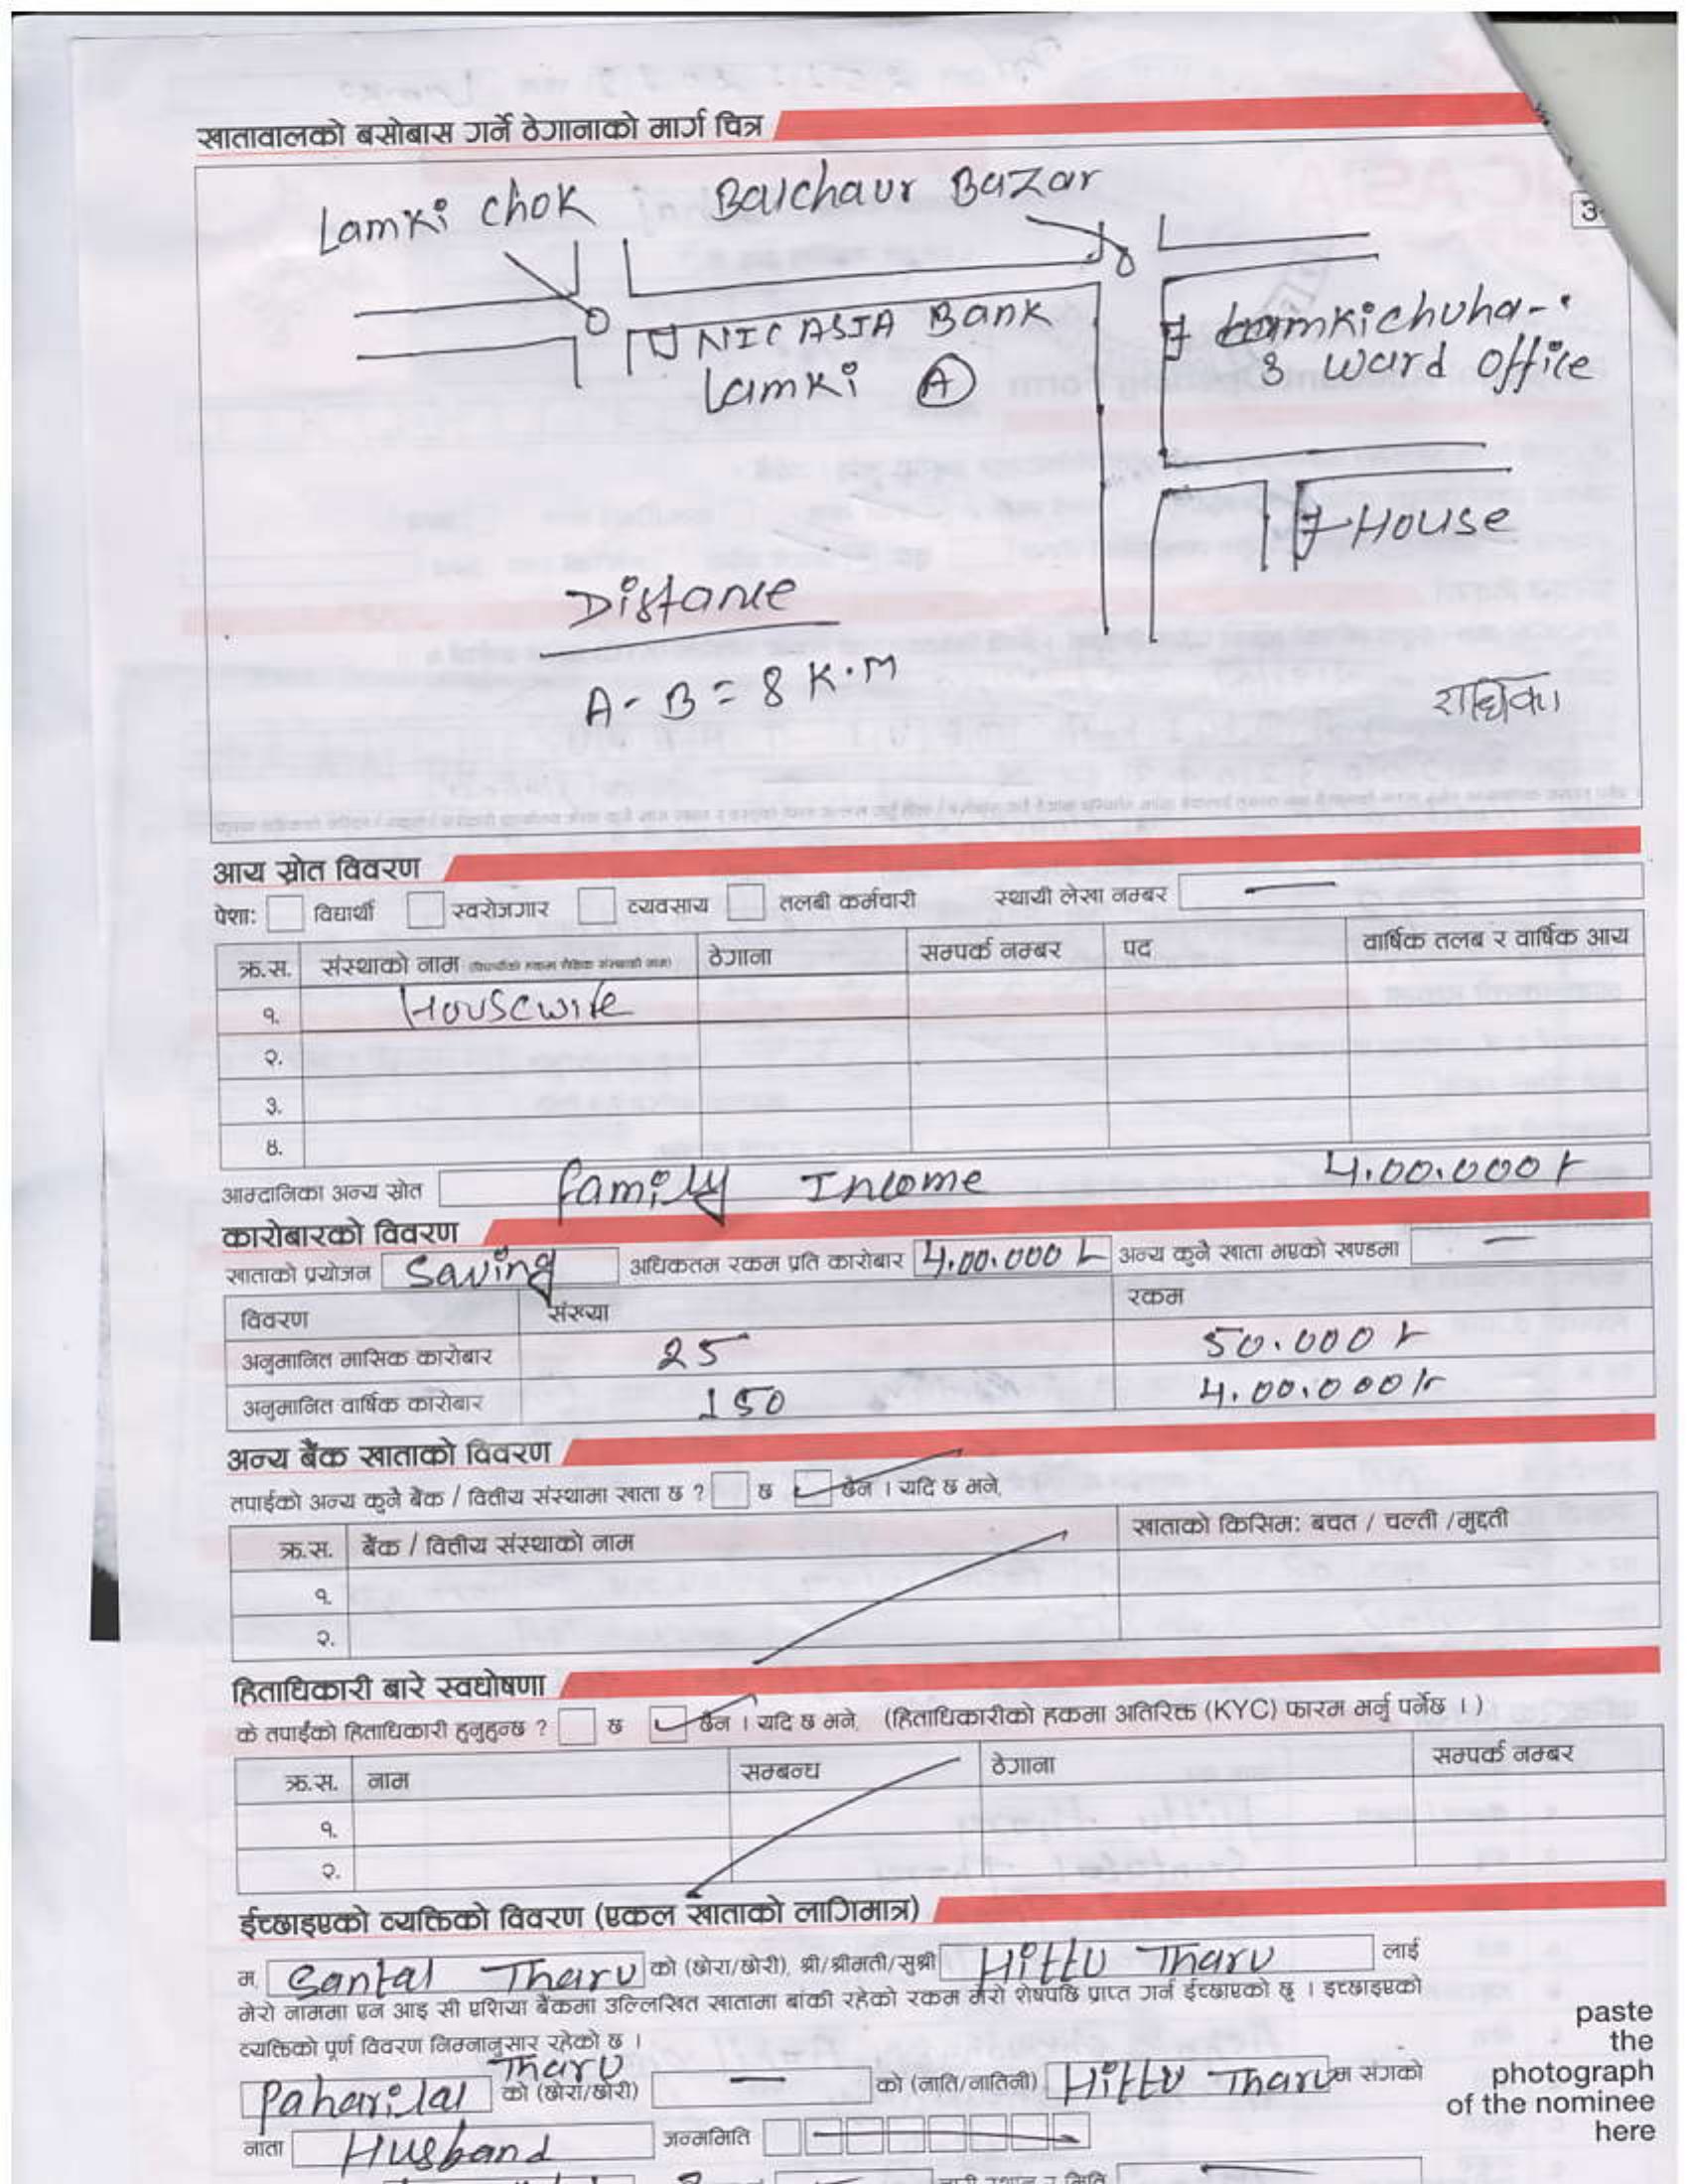 खातावालको बसोबास गर्ने ठेगानाको मार्ग चित्र
Lamki chok Balchaur Bazar
3
NIC ASIA Bank
Lamki A
Lamkichuha-
3 ward office
House
Distance
A - B = 8 K.M
राधिका
आय स्रोत विवरण
पेशा: विद्यार्थी स्वरोजगार व्यवसाय तलबी कर्मचारी स्थायी लेखा नम्बर —
क्र.स. संस्थाको नाम ठेगाना सम्पर्क नम्बर पद वार्षिक तलब र वार्षिक आय
१. Housewife
२.
३.
४.
आम्दानिका अन्य स्रोत family Income 4.00.000/-
कारोबारको विवरण
खाताको प्रयोजन Saving अधिकतम रकम प्रति कारोबार 4.00.000/- अन्य कुनै खाता भएको खण्डमा —
विवरण संख्या रकम
अनुमानित मासिक कारोबार 25 50.000/-
अनुमानित वार्षिक कारोबार 150 4.00.000/-
अन्य बैंक खाताको विवरण
तपाईको अन्य कुनै बैंक / वित्तीय संस्थामा खाता छ ? छ छैन । यदि छ भने,
क्र.स. बैंक / वित्तीय संस्थाको नाम खाताको किसिम: बचत / चल्ती /मुद्दती
१.
२.
हिताधिकारी बारे स्वघोषणा
के तपाईंको हिताधिकारी हुनुहुन्छ ? छ छैन । यदि छ भने, (हिताधिकारीको हकमा अतिरिक्त (KYC) फारम भर्नु पर्नेछ ।)
क्र.स. नाम सम्बन्ध ठेगाना सम्पर्क नम्बर
१.
२.
ईच्छाइएको व्यक्तिको विवरण (एकल खाताको लागिमात्र)
म, Santal Tharu को (छोरा/छोरी), श्री/श्रीमती/सुश्री Hittu Tharu लाई
मेरो नाममा एन आइ सी एशिया बैंकमा उल्लिखित खातामा बांकी रहेको रकम मेरो शेषपछि प्राप्त गर्न ईच्छाएको छु । इच्छाइएको
व्यक्तिको पूर्ण विवरण निम्नानुसार रहेको छ ।
Paharilal Tharu को (छोरा/छोरी) — को (नाति/नातिनी) Hittu Tharu म संगको
नाता Husband जन्ममिति
paste
the
photograph
of the nominee
here